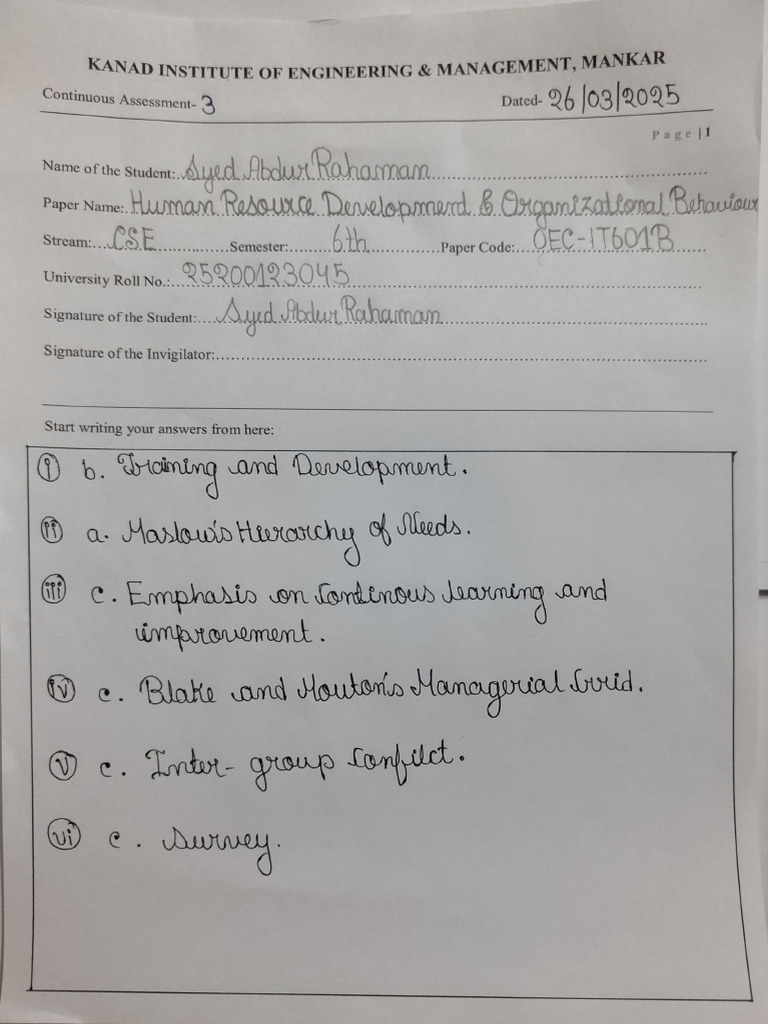 KANAD INSTITUTE OF ENGINEERING & MANAGEMENT, MANKAR
Continuous Assessment- 3 Dated- 26/03/2025
Page | 1
Name of the Student: Syed Abdur Rahaman
Paper Name: Human Resource Development & Organizational Behaviour
Stream: CSE Semester: 6th Paper Code: OEC-IT601B
University Roll No.: 25200123045
Signature of the Student: Syed Abdur Rahaman
Signature of the Invigilator:
Start writing your answers from here:
(i) b. Training and Development.
(ii) a. Maslow's Hierarchy of Needs.
(iii) c. Emphasis on continous learning and
improvement.
(iv) c. Blake and Mouton's Managerial Grid.
(v) c. Inter-group Conflict.
(vi) c. Survey.